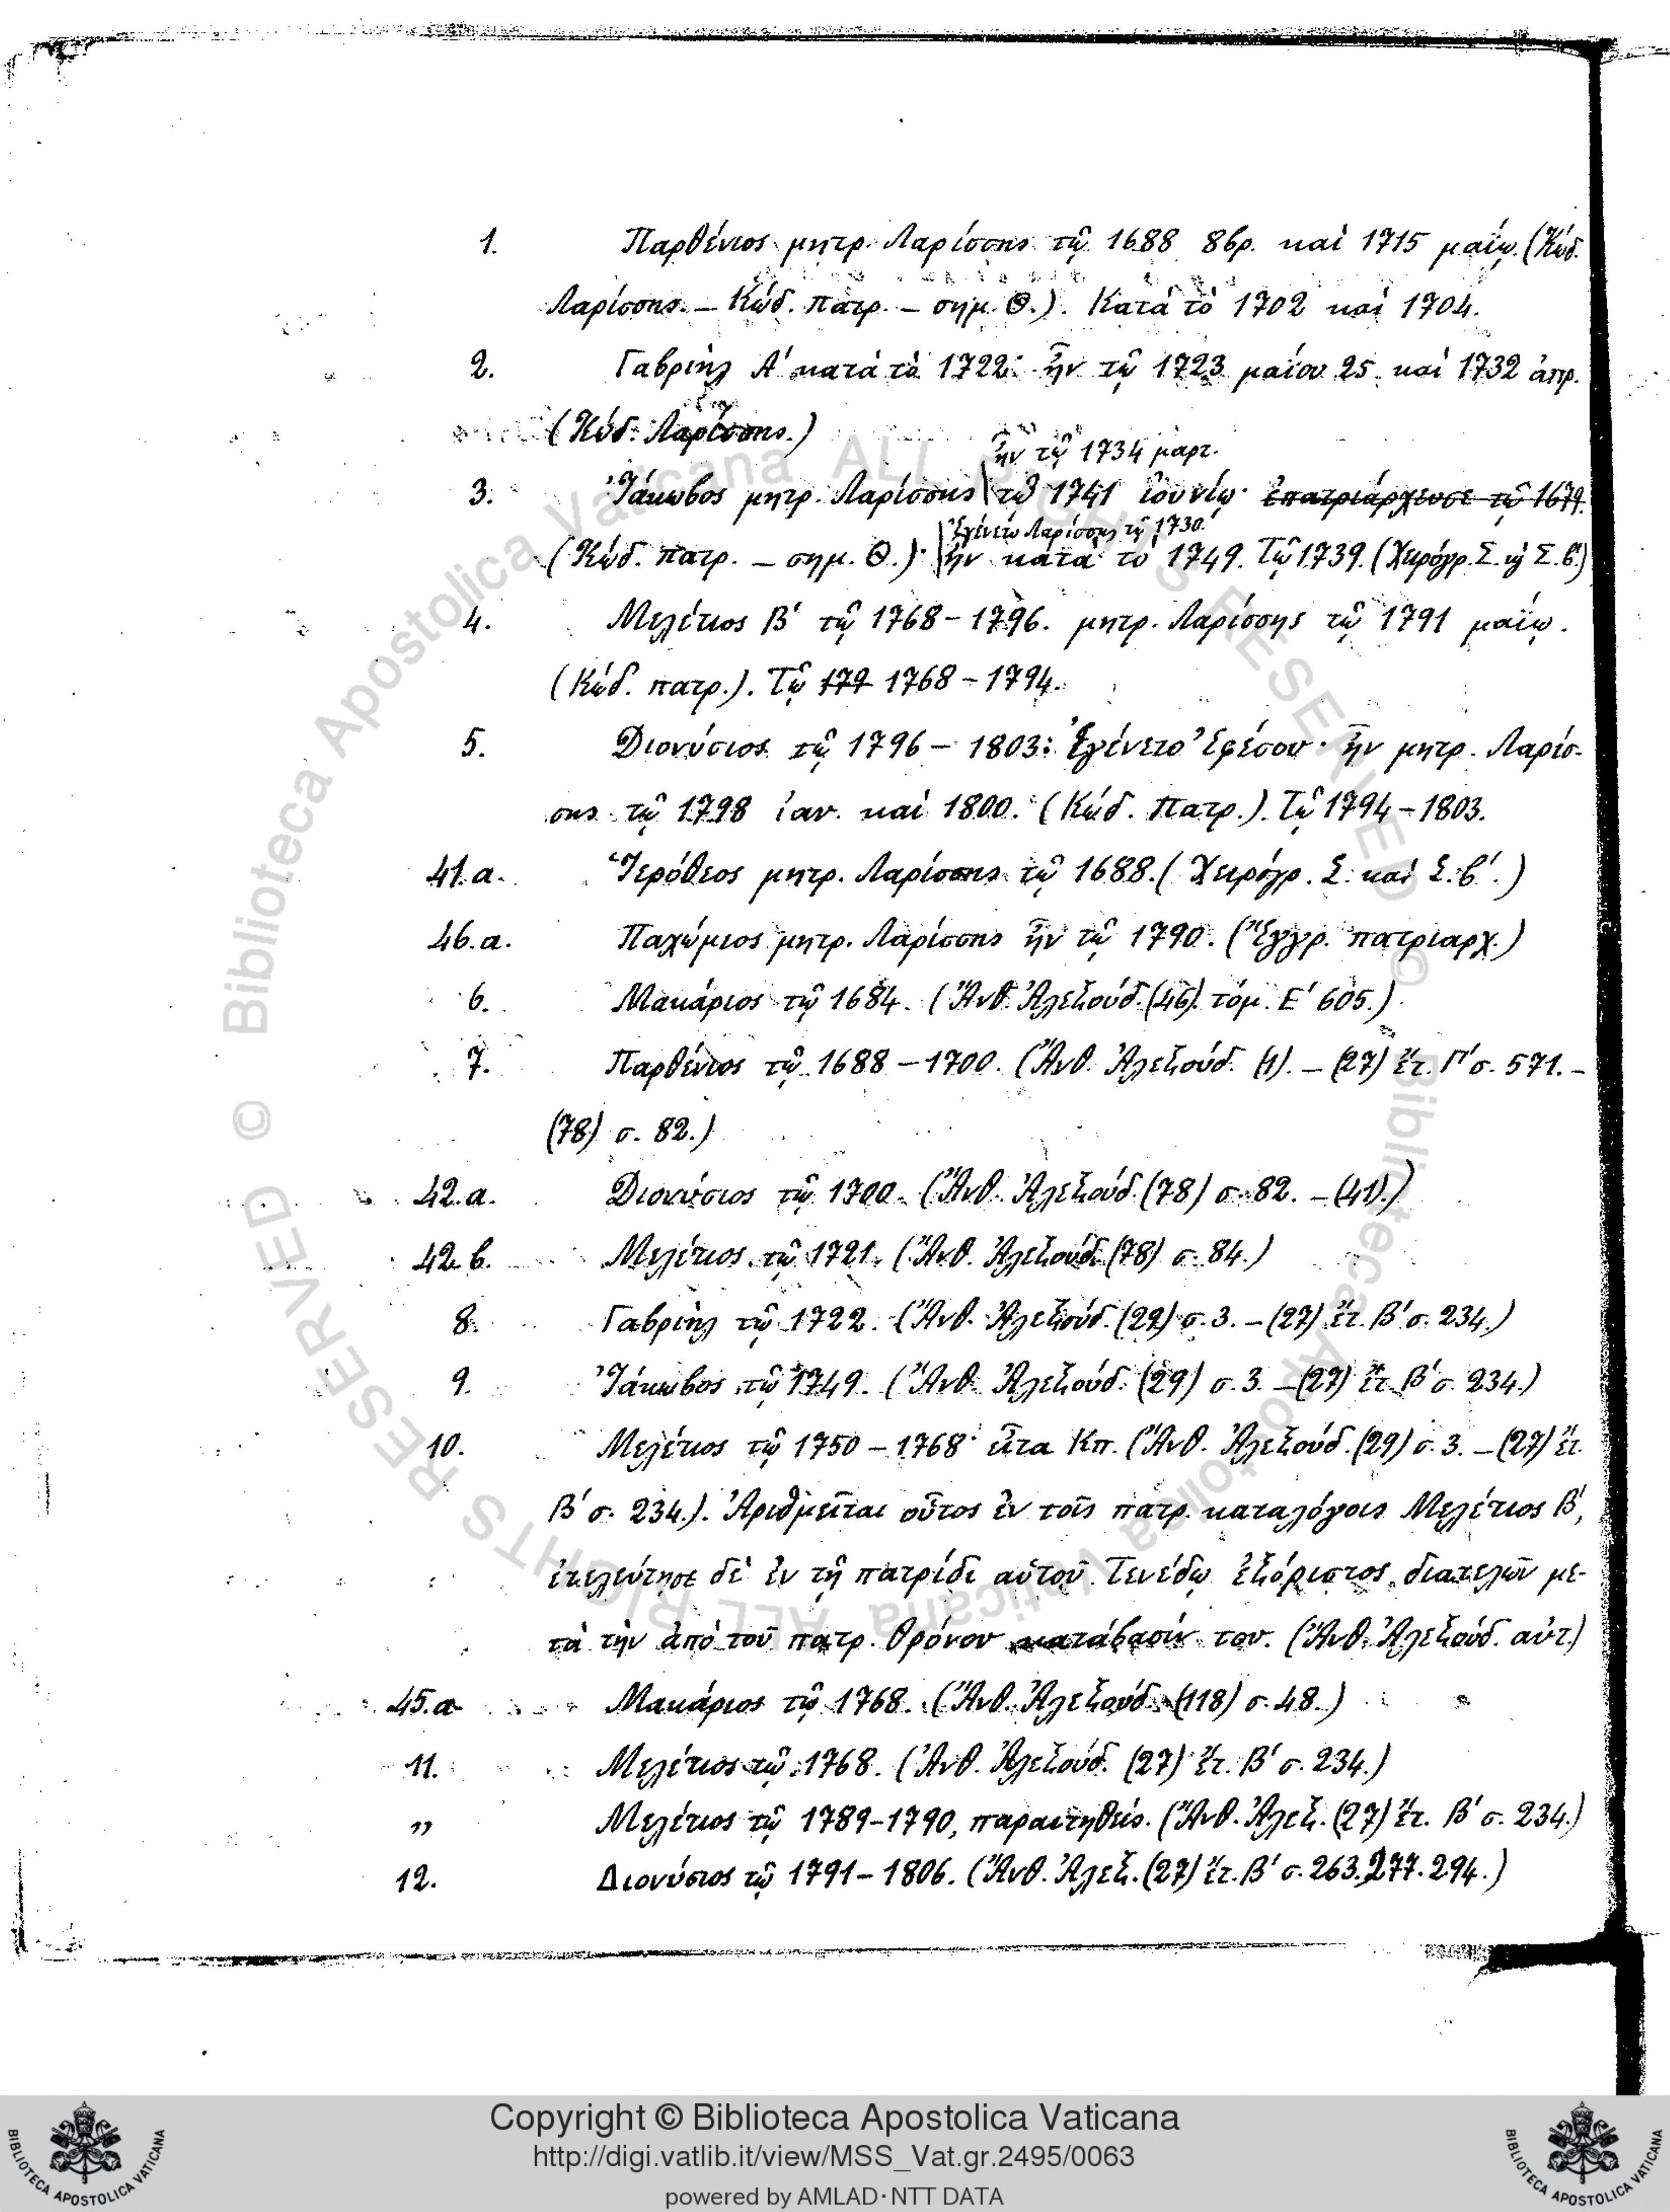 1. Παρθένιος μητρ. Λαρίσσης τῷ 1688 8βρ. καὶ 1715 μαΐῳ. (Κώδ.
Λαρίσσης. – Κώδ. πατρ. – σημ. Θ.). Κατὰ τὸ 1702 καὶ 1704.
2. Γαβριὴλ Α' κατὰ τὸ 1722· ἦν τῷ 1723 μαΐου 25 καὶ 1732 ἀπρ.
(Κώδ. Λαρίσσης.)
ἦν τῷ 1734 μαρτ.
3. Ἰάκωβος μητρ. Λαρίσσης τῷ 1741 ἰουνίῳ· ἐπατριάρχευσε τῷ 1679.
Ἐγένετο Λαρίσσης τῷ 1730.
(Κώδ. πατρ. – σημ. Θ.)· ἦν κατὰ τὸ 1749. Τῷ 1739. (Χειρόγρ. Σ. καὶ Σ.β'.)
4. Μελέτιος Β' τῷ 1768–1796. μητρ. Λαρίσσης τῷ 1791 μαΐῳ.
(Κώδ. πατρ.). Τῷ 179 1768–1794.
5. Διονύσιος τῷ 1796–1803: Ἐγένετο Ἐφέσου· ἦν μητρ. Λαρίσ-
σης τῷ 1798 ἰαν. καὶ 1800. (Κώδ. πατρ.). Τῷ 1794–1803.
41.a. Ἱερόθεος μητρ. Λαρίσσης τῷ 1688. (Χειρόγρ. Σ. καὶ Σ.β'.)
46.a. Παχώμιος μητρ. Λαρίσσης ἦν τῷ 1790. (Ἔγγρ. πατριαρχ.)
6. Μακάριος τῷ 1684. (Ἄνθ. Ἀλεξούδ. (46). τόμ. Ε' 605.)
7. Παρθένιος τῷ 1688–1700. (Ἄνθ. Ἀλεξούδ. (1). – (27) ἔτ. Γ' σ. 571. –
(78) σ. 82.)
42.a. Διονύσιος τῷ 1700. (Ἄνθ. Ἀλεξούδ. (78) σ. 82. – (41).)
42.b. Μελέτιος τῷ 1721. (Ἄνθ. Ἀλεξούδ. (78) σ. 84.)
8. Γαβριὴλ τῷ 1722. (Ἄνθ. Ἀλεξούδ. (29) σ. 3. – (27) ἔτ. Β' σ. 234.)
9. Ἰάκωβος τῷ 1749. (Ἄνθ. Ἀλεξούδ. (29) σ. 3. – (27) ἔτ. Β' σ. 234.)
10. Μελέτιος τῷ 1750–1768· εἶτα Κπ. (Ἄνθ. Ἀλεξούδ. (29) σ. 3. – (27) ἔτ.
Β' σ. 234.). Ἀριθμεῖται οὗτος ἐν τοῖς πατρ. καταλόγοις Μελέτιος Β',
ἐτελεύτησε δὲ ἐν τῇ πατρίδι αὐτοῦ Τενέδῳ ἐξόριστος διατελῶν με-
τὰ τὴν ἀπὸ τοῦ πατρ. θρόνου κατάβασίν του. (Ἄνθ. Ἀλεξούδ. αὐτ.)
45.a Μακάριος τῷ 1768. (Ἄνθ. Ἀλεξούδ. (118) σ. 48.)
11. Μελέτιος τῷ 1768. (Ἄνθ. Ἀλεξούδ. (27) ἔτ. Β' σ. 234.)
" Μελέτιος τῷ 1789–1790, παραιτηθείς. (Ἄνθ. Ἀλεξ. (27) ἔτ. Β' σ. 234.)
12. Διονύσιος τῷ 1791–1806. (Ἄνθ. Ἀλεξ. (27) ἔτ. Β' σ. 263. 277. 294.)
© Biblioteca Apostolica Vaticana ALL RIGHTS RESERVED © Biblioteca Apostolica Vaticana ALL RIGHTS RESERVED
Copyright © Biblioteca Apostolica Vaticana
http://digi.vatlib.it/view/MSS_Vat.gr.2495/0063
powered by AMLAD·NTT DATA
BIBLIOTECA APOSTOLICA VATICANA
BIBLIOTECA APOSTOLICA VATICANA